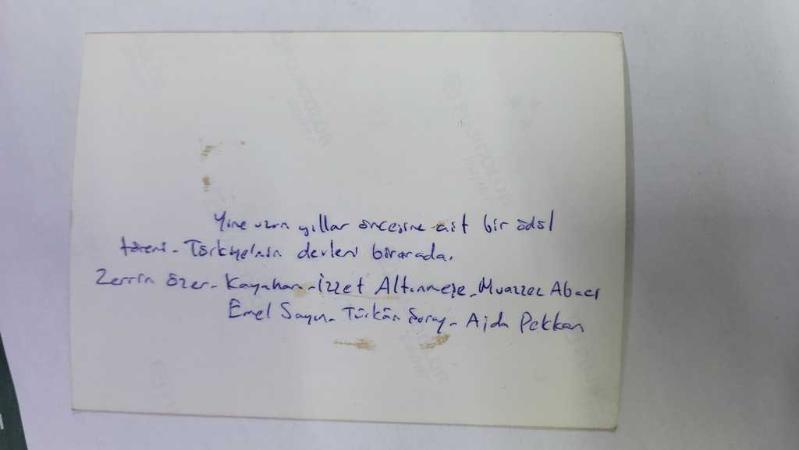 Yine uzun yıllar öncesine ait bir ödül
töreni - Türkiye'nin devleri birarada.
Zerrin Özer - Kayahan - İzzet Altınmeşe - Muazzez Abacı
Emel Sayın - Türkân Şoray - Ajda Pekkan